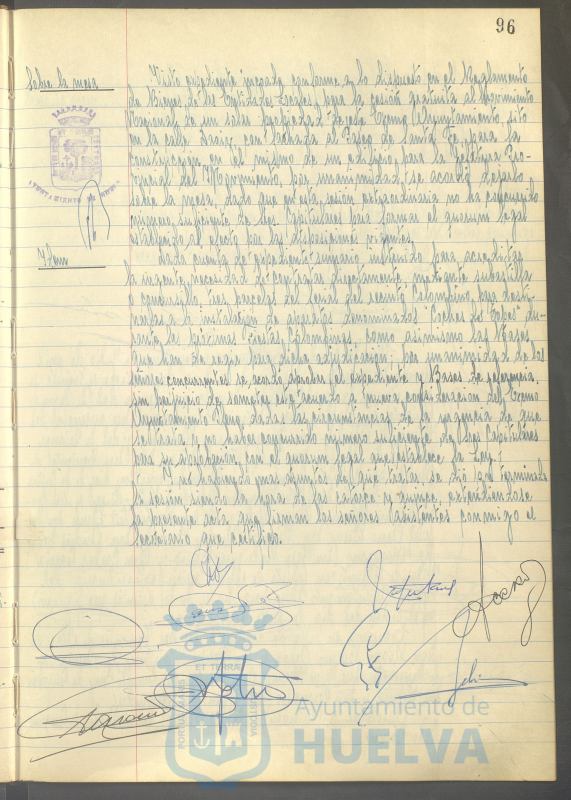 96
Sobre la mesa
Visto expediente incoado conforme a lo dispuesto en el Reglamento
de Bienes de las Entidades Locales, para la cesión gratuita al Movimiento
Nacional de un solar propiedad de este Excmo Ayuntamiento, sito
en la calle Sanz, con fachada al Paseo de Santa Fe, para la
construcción en el mismo de un edificio para la Jefatura Pro-
vincial del Movimiento, por unanimidad se acordó dejarlo
sobre la mesa, dado que en esta sesión extraordinaria no ha concurrido
número suficiente de Sres Capitulares para formar el quorum legal
establecido al efecto por las disposiciones vigentes.
Item
Dada cuenta de expediente sumario instruido para acreditar
la urgente necesidad de contratar directamente, mediante subastilla
o concursillo, tres parcelas del ferial del recinto Colombino, para desti-
narlas a la instalación de aparatos denominados "Coches de Topes" du-
rante las próximas Fiestas Colombinas, como asimismo las Bases
que han de regir para dicha adjudicación; por unanimidad de los
señores concurrentes se acordó aprobar el expediente y Bases de referencia,
sin perjuicio de someter este acuerdo a nueva consideración del Excmo
Ayuntamiento Pleno, dadas las circunstancias de la urgencia de que
se trata y no haber concurrido número suficiente de Sres Capitulares
para su adopción, con el quorum legal que establece la Ley.
Y no habiendo mas asuntos de que tratar se dió por terminada
la sesión, siendo la hora de las catorce y quince, extendiéndose
la presente acta que firman los señores asistentes conmigo el
Secretario que certifico.
Ayuntamiento de
HUELVA